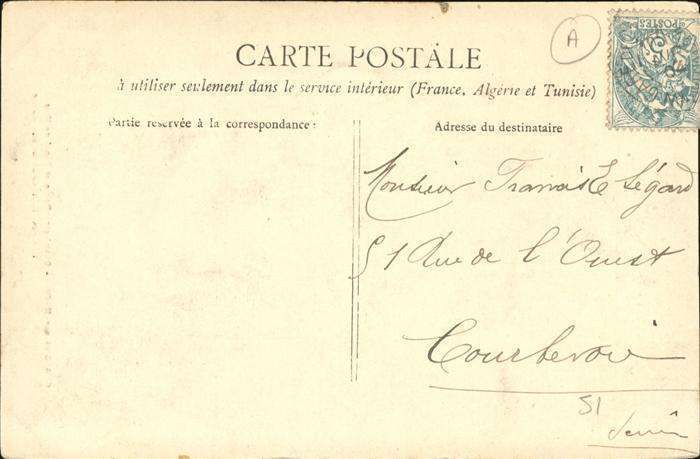 CARTE POSTALE
à utiliser seulement dans le service intérieur (France, Algérie et Tunisie)
Partie reservée à la correspondance:
Adresse du destinataire
A
POSTES
Monsieur
51 Rue de l'Ouest
Courbevoie
51